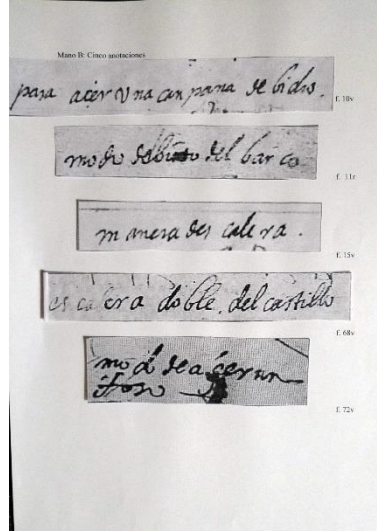 Mano B: Cinco anotaciones
para açer una canpana de bidro.
f. 10v
modo del barco
f. 11r
manera des calera.
f. 15v
es calera doble. del castillo
f. 68v
mod de açer un
f. 72v